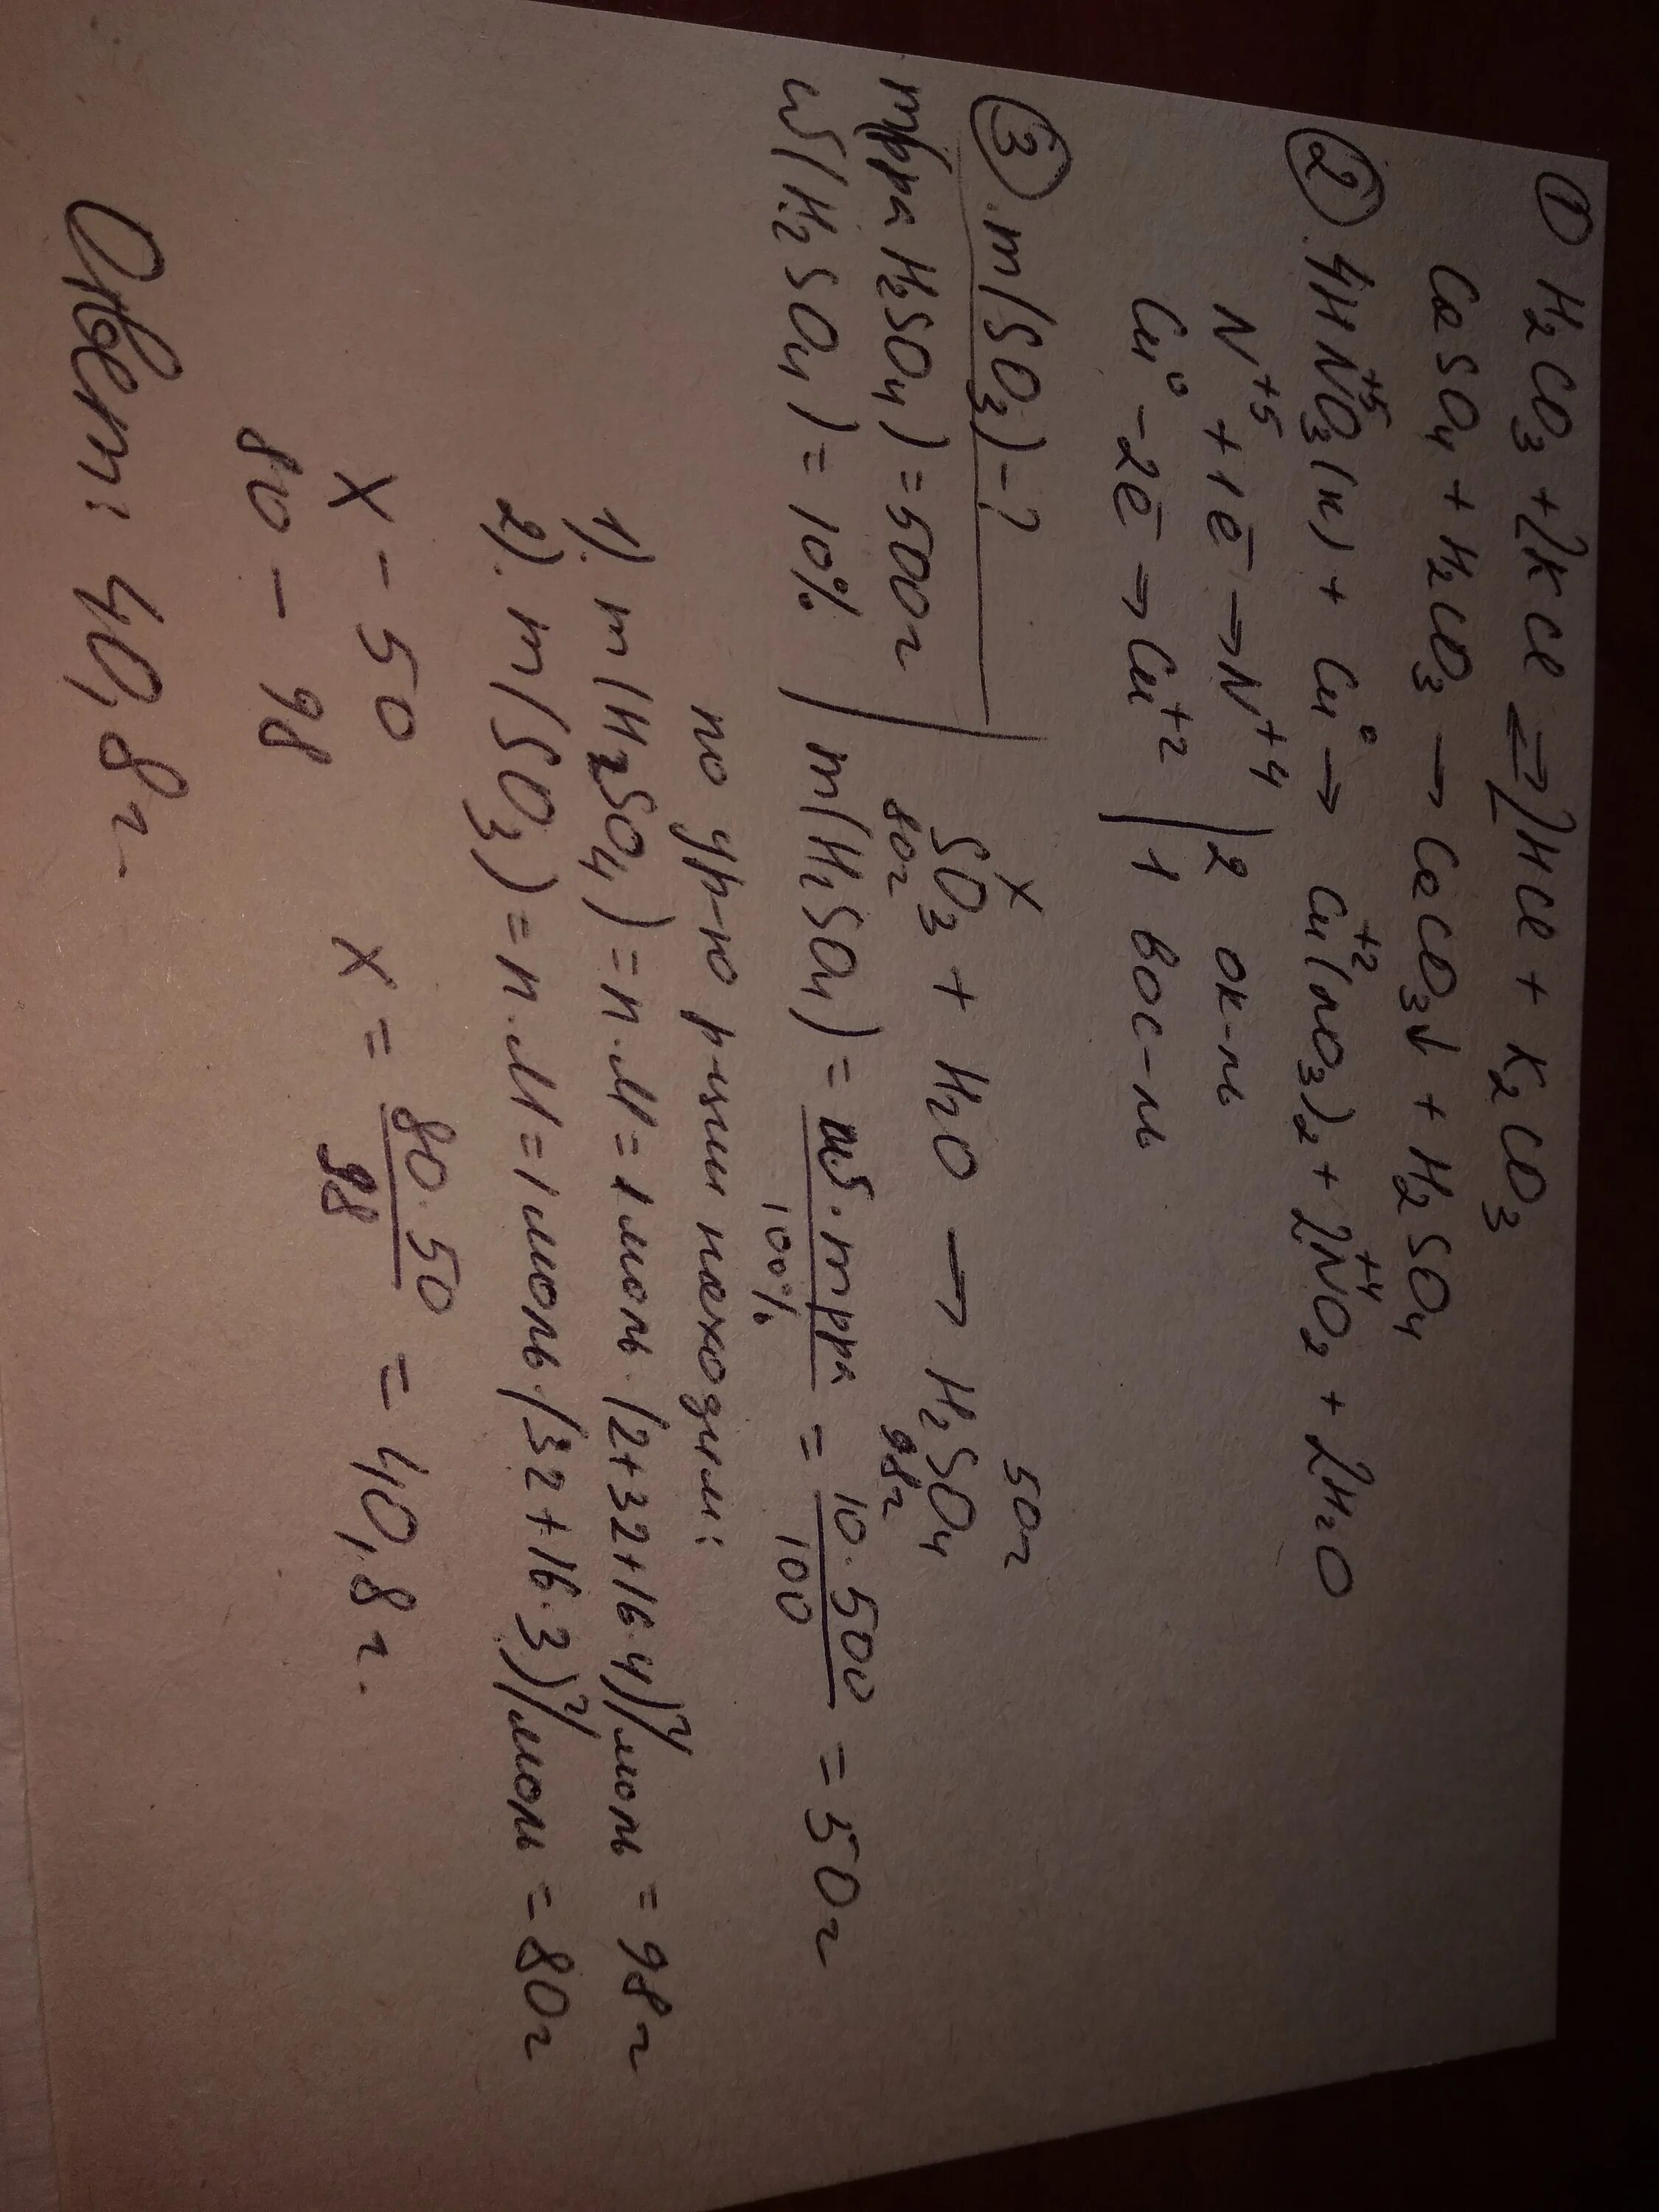 ① H₂CO₃ + 2KCl ⇌ 2HCl + K₂CO₃
CaSO₄ + H₂CO₃ → CaCO₃↓ + H₂SO₄
②. 4HN⁺⁵O₃(к) + Cu⁰ → Cu⁺²(NO₃)₂ + 2N⁺⁴O₂ + 2H₂O
N⁺⁵ + 1ē → N⁺⁴ | 2 ок-ль
Cu⁰ - 2ē → Cu⁺² | 1 вос-ль
③. m(SO₃) - ?
mр-ра H₂SO₄) = 500г
w(H₂SO₄) = 10%
x 50г
SO₃ + H₂O → H₂SO₄
80г 98г
m(H₂SO₄) = w · mр-ра / 100% = 10 · 500 / 100 = 50г
по ур-ю р-ции находим:
1). m(H₂SO₄) = n · M = 1 моль · (2+32+16·4) г/моль = 98г
2). m(SO₃) = n · M = 1 моль · (32+16·3) г/моль = 80г
x - 50
80 - 98
x = 80 · 50 / 98 = 40,8г.
Ответ: 40,8г.